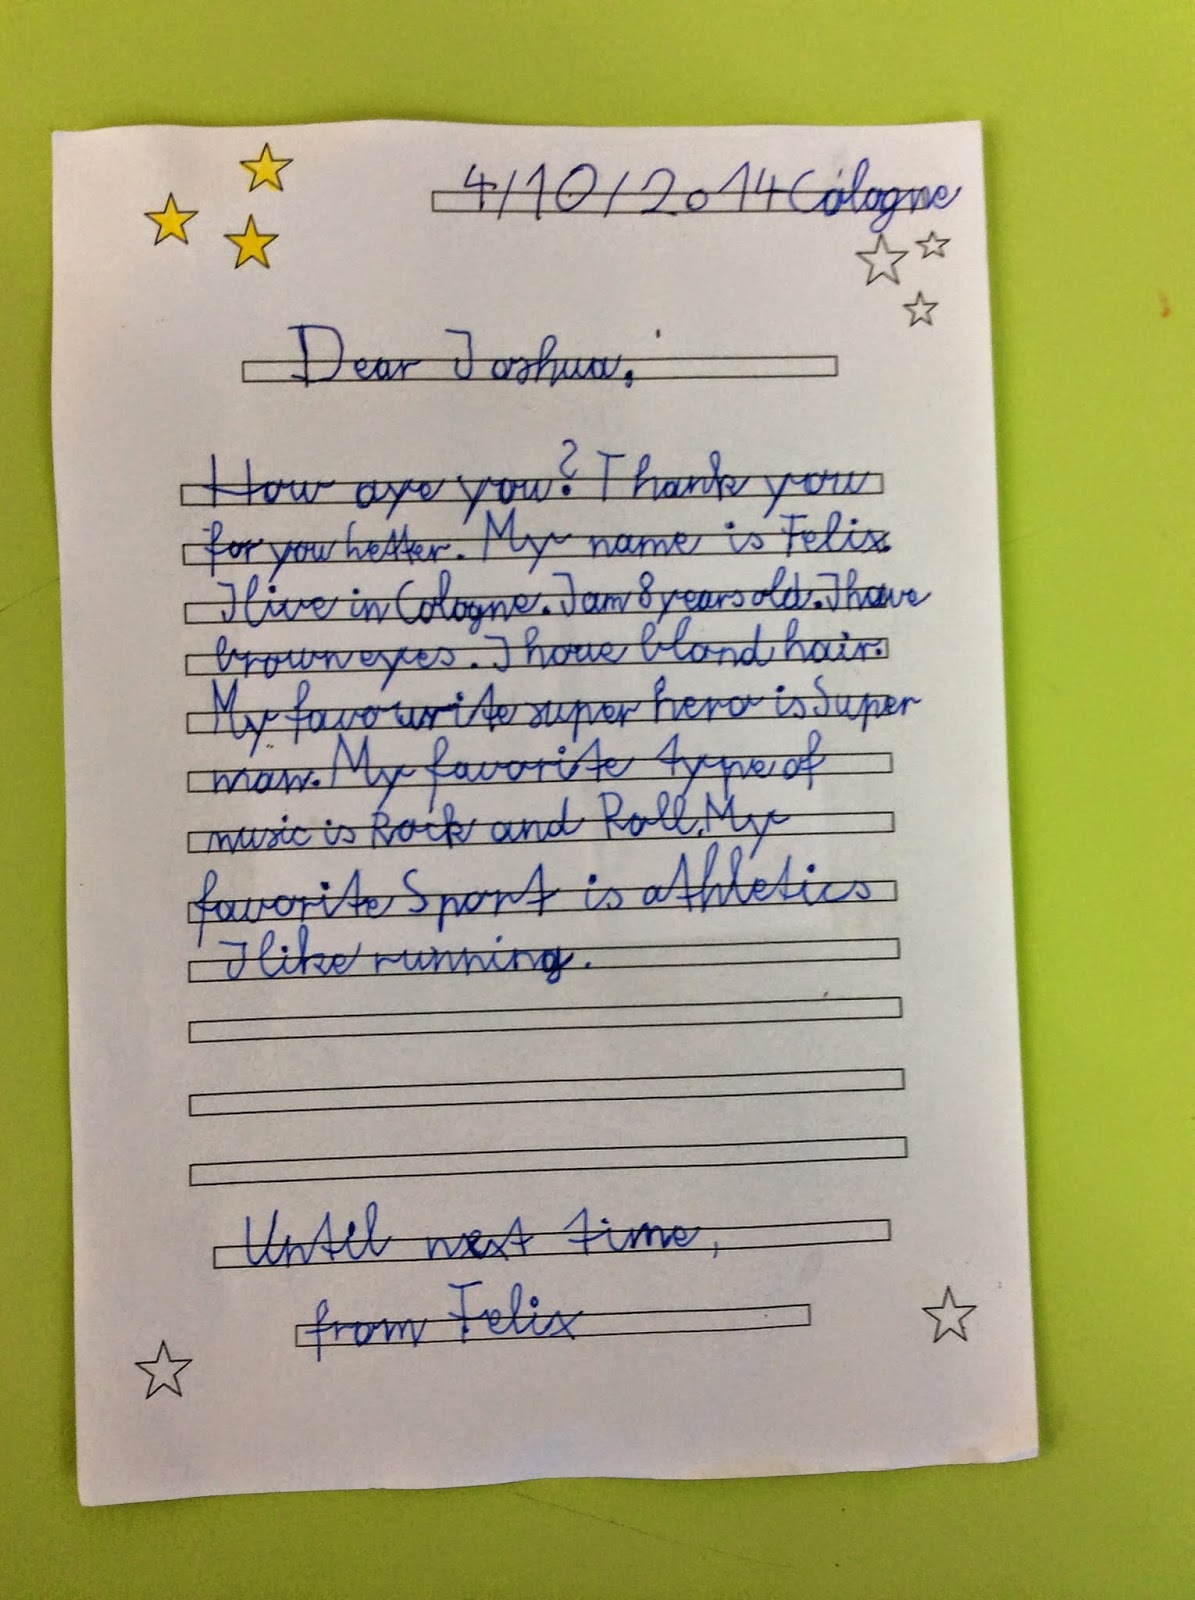 4/10/2014 Cologne
Dear Joshua,
How are you? Thank you
for you letter. My name is Felix.
I live in Cologne. I am 8 years old. I have
brown eyes. I have blond hair.
My favourite super hero is Super
man. My favorite type of
music is Rock and Roll. My
favorite Sport is athletics
I like running.
Until next time,
from Felix